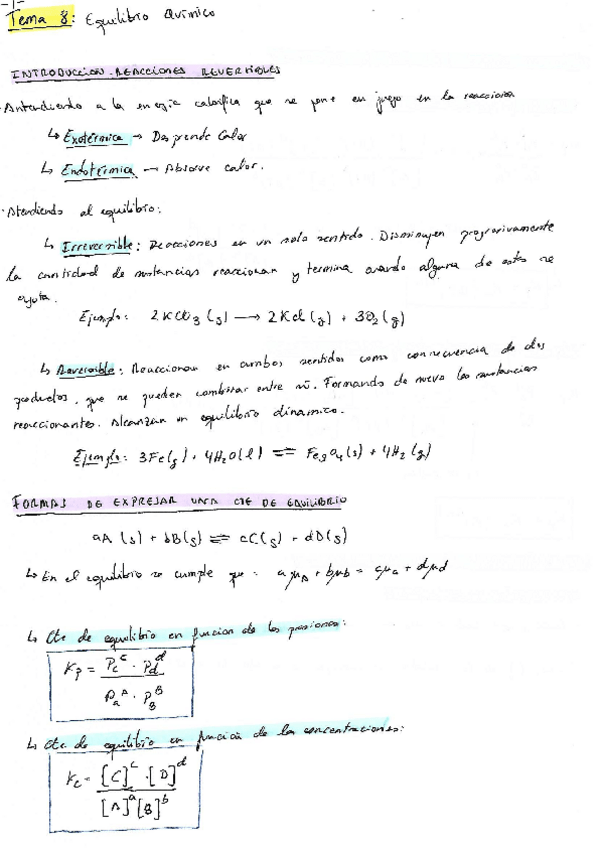 Tema 8: Equilibrio Químico
INTRODUCCION. REACCIONES REVERSIBLES
· Antendiendo a la energia calorifica que se pone en juego en la reaccion
↳ Exotérmica → Desprende Calor
↳ Endotérmica → Absorve calor.
· Atendiendo al equilibrio:
↳ Irreversible: Reacciones en un solo sentido. Disminuyen progresivamente
la cantidad de sustancias reaccionan y termina cuando alguna de estas se
agota.
Ejemplo: 2KClO3 (s) → 2KCl (g) + 3O2 (g)
↳ Reversible: Reaccionan en ambos sentidos como consecuencia de dos
productos, que se pueden combinar entre sí. Formando de nuevo las sustancias
reaccionantes. Alcanzan un equilibrio dinamico.
Ejemplo: 3Fe(g) + 4H2O(l) ⇌ Fe3O4(s) + 4H2(g)
FORMAS DE EXPRESAR UNA CTE DE EQUILIBRIO
aA (s) + bB(s) ⇌ cC(s) + dD(s)
↳ En el equilibrio se cumple que: aμA + bμb = cμc + dμd
↳ Cte de equilibrio en funcion de las presiones:
Kp = Pc^c · Pd^d / Pa^A · PB^B
↳ Cte de equilibrio en función de las concentraciones:
Kc = [C]^c · [D]^d / [A]^a [B]^b